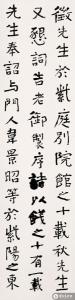 徵先生於紫庭別院館之十載秋先生
又懇詞告老御製序詩以餞之十有一載
先生奉詔與門人韋景昭等於紫陽之東